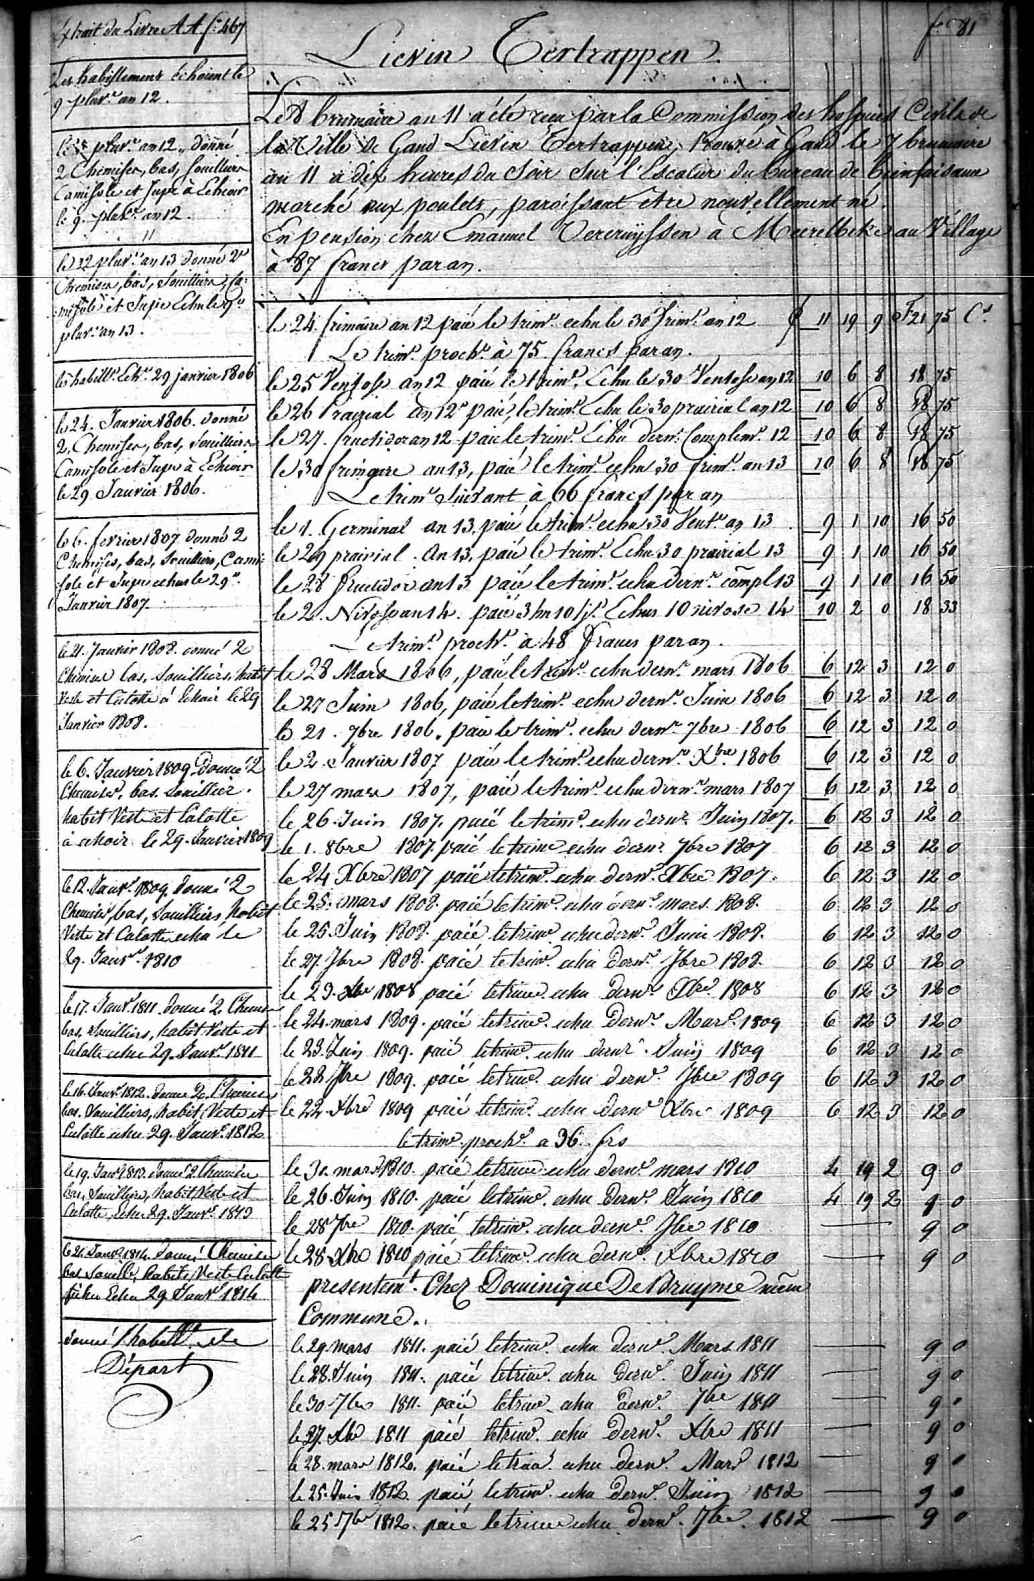 Extrait du Livre AA f° 467
f° 81
Lievin Tertrappen.
Les habillemens échoient le
9 pluv.e an 12.
pluv.e an 12, donné
2 Chemises, bas, souilliers
Camisole et Jupe à Echeoir
le 9 pluv.e an 12.
le 12 pluv.e an 13 donné 2
Chemises, bas, souilliers, Ca-
misole et Jupe Echu le 9
pluv.e an 13.
les habill.s Ech.t 29 janvier 1806
le 24. Janvier 1806. donné
2, Chemises, bas, souilliers
Camisole et Jupe à Echeoir
le 29 Janvier 1806.
le 6. fevrier 1807 donné 2
Chemises, bas, souilliers, Cami-
sole et Jupe echus le 29
Janvier 1807.
le 21. Janvier 1808. donné 2
Chemises bas, souilliers habit
Veste et Culotte à Echeoir le 29
Janvier 1808.
le 6. Janvier 1809. donné 2
Chemises, bas, souillier.
habit Veste et Culotte
à echeoir le 29. Janvier 1809
le 12. Janv.r 1809. donné 2
Chemises, bas, souilliers, habit
Veste et Culotte echu le
29. Janv.r 1810
le 17. Janv.r 1811. donné 2 Chemises
bas, souilliers, habit Veste et
Culotte echu 29. Janv.r 1811
le 16. Janv.r 1812. donné 2 Chemises
bas. souilliers, habit, Veste et
Culotte echu 29. Janv.r 1812
le 19. Janv.r 1813. donné 2 Chemises
bas, souilliers, habit, Veste et
Culotte, echu 29. Janv.r 1813
le 21. Janv.r 1814. donné Chemises
bas souilli. habits, Veste Culotte
fichu Echu 29 Janv.r 1814
donné l'habill.t de
Départ
Le 8 brumaire an 11 a été reçu par la Commission des hospices Civils de
la Ville de Gand Lievin Tertrappen, trouvé à Gand le 7 brumaire
an 11 à dix heures du soir sur l'Escalier du bureau de bienfaisance
marché aux poulets, paroissant etre nouvellement né.
En pension chez Emanuel Vercruyssen à Meirelbeke au Village
à 87 francs par an.
le 24. frimaire an 12 paié le trim.e echu le 30 frim.e an 12 £ 11 19 9 F 21 75 C.s
Le trim.e proch.n à 75. francs par an.
le 25 Ventose an 12 paié le trim.e Echu le 30 Ventose an 12 10 6 8 18 75
le 26 Prairial an 12 paié, le trim.e Echu le 30 prairial an 12 10 6 8 18 75
le 27. fructidor an 12 paié le trim.e Echu dern.r Complem.e 12 10 6 8 18 75
le 30 frimaire an 13, paié le trim.e echu 30 frim.e an 13 10 6 8 18 75
Le trim.e suivant à 66 francs par an
le 1. Germinal an 13. paié le trim.e echu 30 Vent.e an 13 9 1 10 16 50
le 29 prairial. An 13, paié le trim.e Echu 30 prairial 13 9 1 10 16 50
le 28 fructidor an 13 paié le trim.e echu dern.r compl 13 9 1 10 16 50
le 2. Nivose an 14. paié 3 m 10 j.s Echus 10 nivose 14 10 2 0 18 33
Le trim.e proch.n à 48 francs par an.
le 28 Mars 1806, paié le trim.e echu dern.r mars 1806 6 12 3 12 0
le 27 Juin 1806, paié le trim.e echu dern.r Juin 1806 6 12 3 12 0
le 21. 7bre 1806. paié le trim.e echu dern.r 7bre 1806 6 12 3 12 0
le 2. Janvier 1807 paié le trim.e echu dern.r Xbre 1806 6 12 3 12 0
le 27 mars 1807, paié le trim.e echu dern.r mars 1807 6 12 3 12 0
le 26. Juin 1807. paié le trim.e echu dern.r Juin 1807. 6 12 3 12 0
le 1. 8bre 1807 paié le trim.e echu dern.r 7bre 1807 6 12 3 12 0
le 24 Xbre 1807 paié le trim.e echu dern.r Xbre 1807. 6 12 3 12 0
le 25. mars 1808. paié le trim.e echu dern.r mars. 1808. 6 12 3 12 0
le 25. Juin 1808. paié le trim.e echu dern.r Juin 1808. 6 12 3 12 0
le 27 7bre 1808. paié le trim.e echu dern.r 7bre 1808. 6 12 3 12 0
le 23. Xbre 1808 paié le trim.e echu dern.r Xbre 1808 6 12 3 12 0
le 24. mars 1809. paié le trim.e echu dern.r Mars. 1809 6 12 3 12 0
le 23. Juin 1809. paié le trim.e echu dern.r Juin 1809 6 12 3 12 0
le 22 7bre 1809. paié le trim.e echu dern.r 7bre 1809 6 12 3 12 0
le 22. Xbre 1809 paié le trim.e echu dern.r Xbre 1809 6 12 3 12 0
le trim.e proch.n a 36. frs
le 30. mars 1810. paié le trim.e echu dern.r mars 1810 4 19 2 9 0
le 26. Juin 1810. paié le trim.e echu dern.r Juin 1810 4 19 2 9 0
le 28 7bre 1810. paié le trim.e echu dern.r 7bre 1810 9 0
le 28 Xbre 1810 paié le trim.e echu dern.r Xbre 1810 9 0
presentem.t Chez Dominique De Bruyne même
Commune.
le 29. mars 1811. paié le trim.e echu dern.r Mars 1811 9 0
le 28. Juin 1811. paié le trim.e echu dern.r Juin 1811 9 0
le 30 7bre 1811. paié le trim.e echu dern.r 7bre 1811 9 0
le 27. Xbre 1811 paié le trim.e echu dern.r Xbre 1811 9 0
le 28. mars 1812. paié le trim.e echu dern.r Mars 1812 9 0
le 25. Juin 1812. paié le trim.e echu dern.r Juin 1812 9 0
le 25 7bre 1812. paié le trim.e echu dern.r 7bre. 1812 9 0